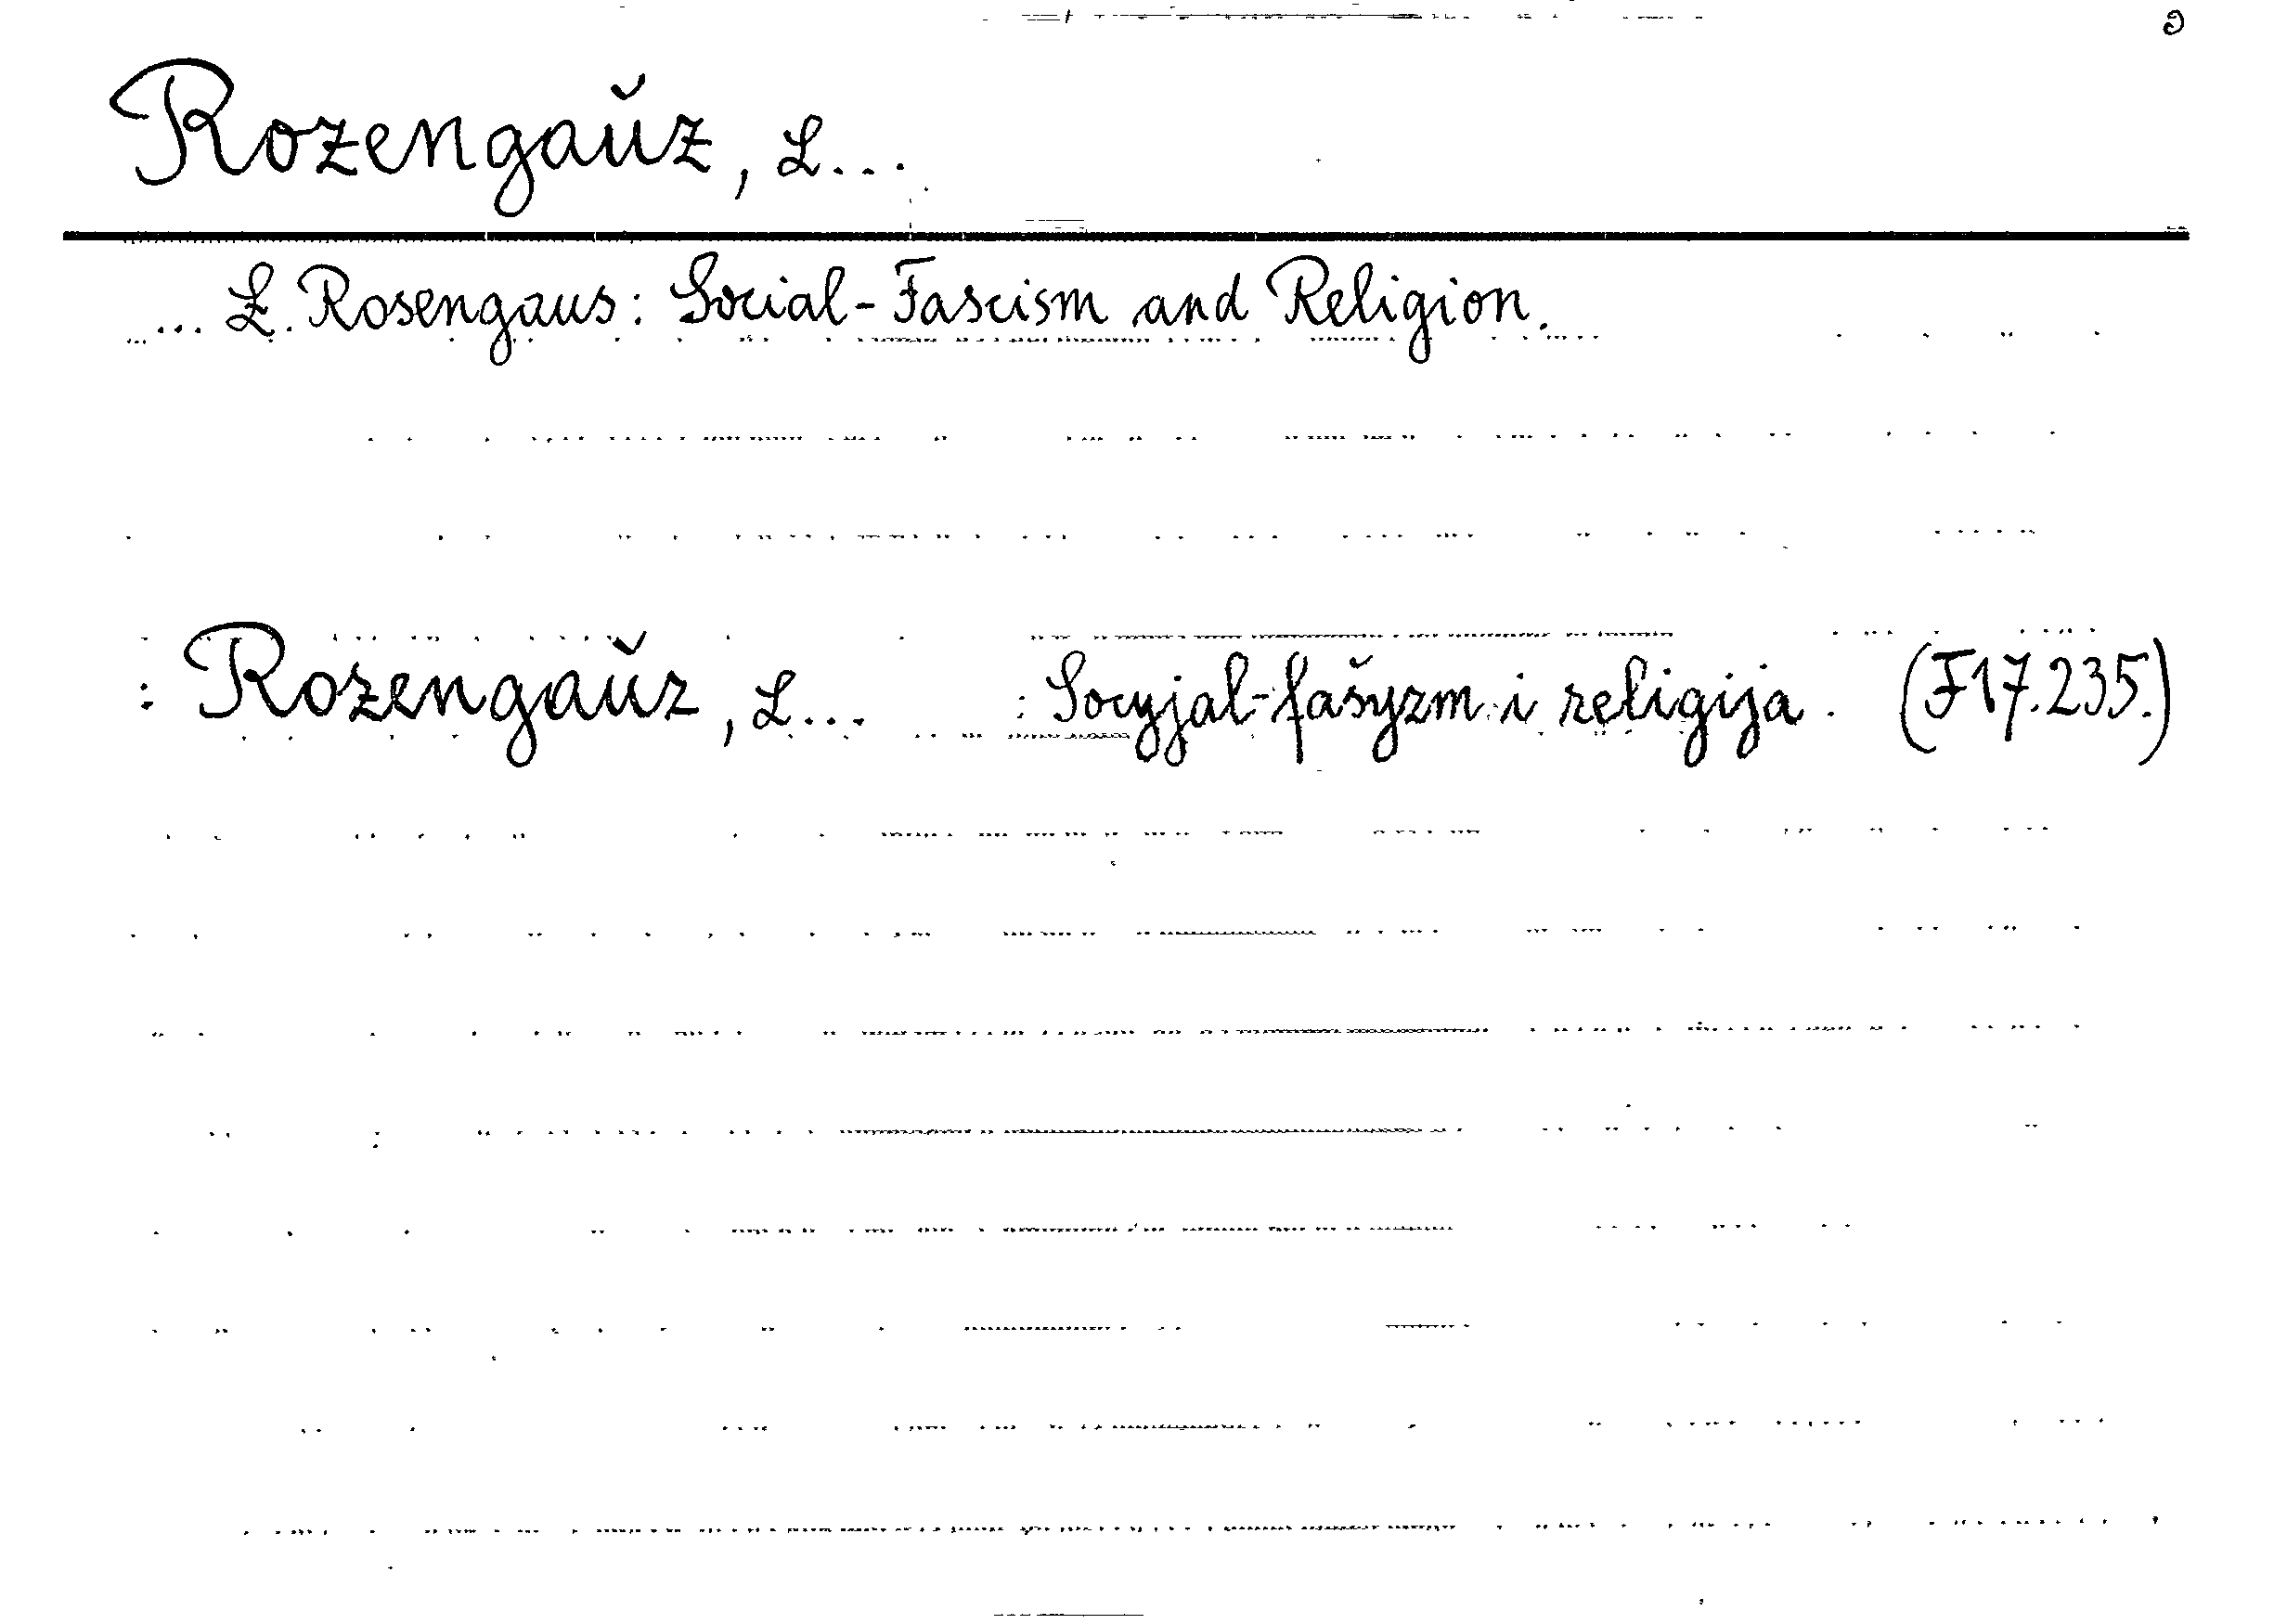 Rozengaŭz, L...
... L. Rosengaus: Social-Fascism and Religion.
: Rozengaŭz, L... : Socyjal-fašyzm i religija. (F17.235.)